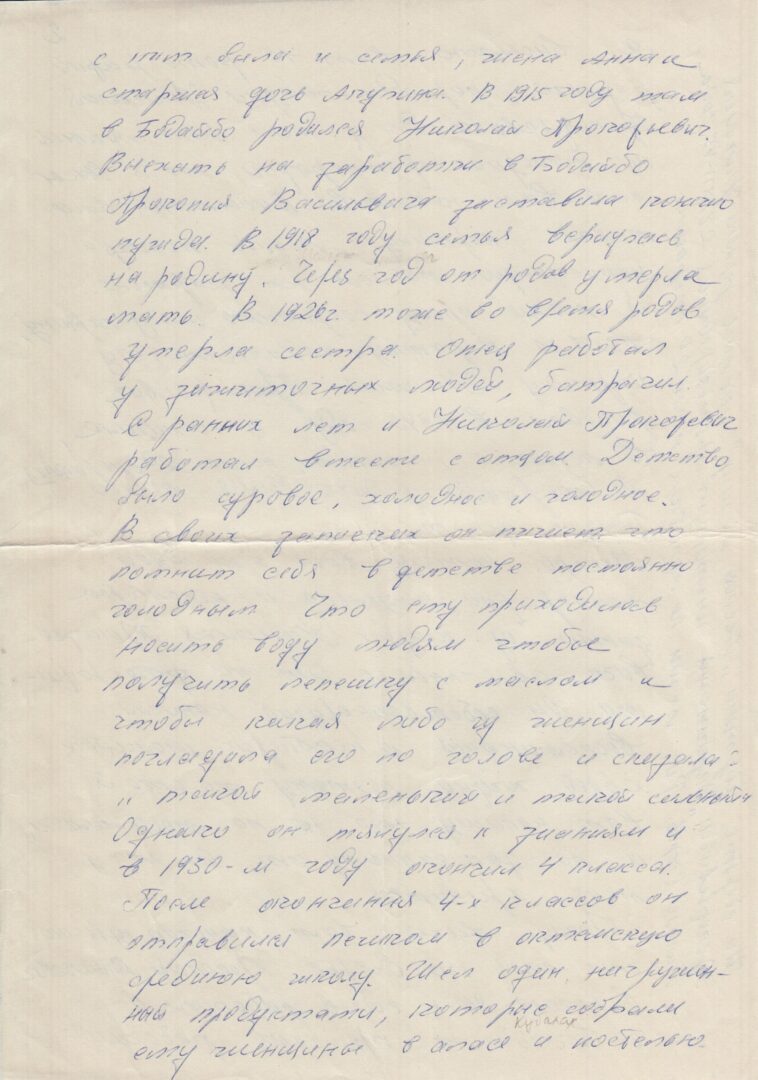 с ним была и семья, жена Анна и
старшая дочь Акулина. В 1915 году там
в Бодайбо родился Николай Прокопьевич.
Выехать на заработки в Бодайбо
Прокопия Васильевича заставила конечно
нужда. В 1918 году семья вернулась
на родину. Через год от родов умерла
мать. В 1926 г. тоже во время родов
умерла сестра. Отец работал
у зажиточных людей, батрачил.
С ранних лет и Николай Прокопевич
работал вместе с отцом. Детство
было суровое, холодное и голодное.
В своих записках он пишет, что
помнит себя в детстве постоянно
голодным. Что ему приходилось
носить воду людям чтобы
получить лепешку с маслом и
чтобы какая либо из женщин
погладила его по голове и сказала:
„такой маленький и такой сильный"
Однако он тянулся к знаниям и
в 1930-м году окончил 4 класса.
После окончания 4-х классов он
отправился пешком в октемскую
среднюю школу. Шел один, нагружен-
ный продуктами, которые собрали
ему женщины в аласе и постелью.
Кубалах